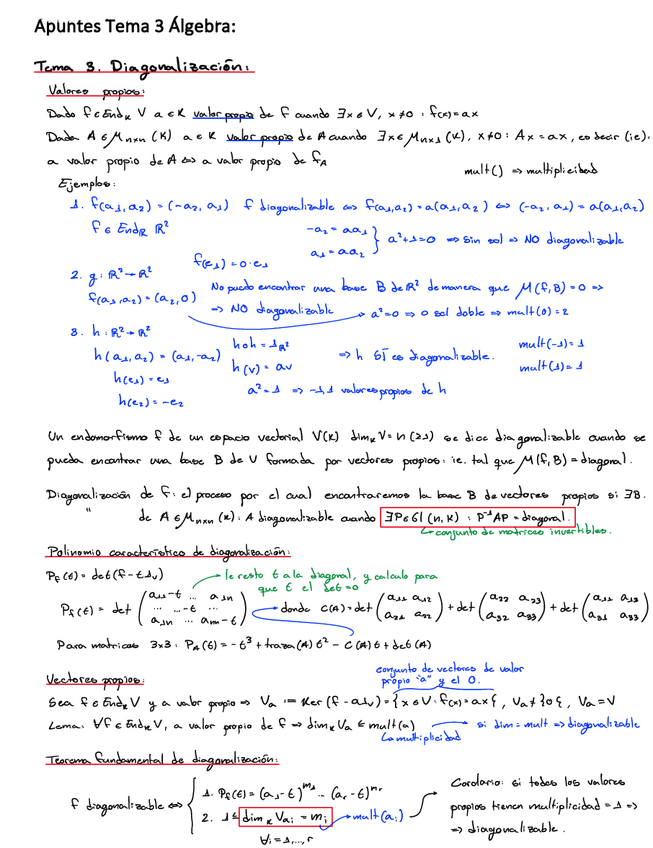 Apuntes Tema 3 Álgebra:
Tema 3. Diagonalización:
Valores propios:
Dado f ∈ End_K V a ∈ K valor propio de f cuando ∃x ∈ V, x≠0 : f(x) = ax
Dada A ∈ M_nxn (K) a ∈ K valor propio de A cuando ∃x ∈ M_nx1 (K), x≠0 : Ax = ax, es decir (ie).
a valor propio de A ⇔ a valor propio de f_A
mult() => multiplicidad
Ejemplos:
1. f(a1, a2) = (-a2, a1) f diagonalizable ⇔ f(a1,a2) = a(a1,a2) ⇔ (-a2, a1) = a(a1,a2)
f ∈ End_R R²
-a2 = aa1
a1 = aa2 } a²+1=0 => sin sol => NO diagonalizable
2. g: R² → R²
f(e1) = 0·e1
f(a1,a2) = (a2,0)
No puedo encontrar una base B de R² de manera que M(f,B) = 0 =>
=> NO diagonalizable
a²=0 => 0 sol doble => mult(0) = 2
3. h: R² → R²
h(a1,a2) = (a1,-a2)
h(e1) = e1
h(e2) = -e2
h∘h = 1_R²
h(v) = av
=> h SÍ es diagonalizable.
a² = 1 => -1,1 valores propios de h
mult(-1) = 1
mult(1) = 1
Un endomorfismo f de un espacio vectorial V(K) dim_K V = n (≥1) se dice diagonalizable cuando se
pueda encontrar una base B de V formada por vectores propios: ie. tal que M(f,B) = diagonal.
Diagonalización de f: el proceso por el cual encontraremos la base B de vectores propios si ∃B.
" de A ∈ M_nxn (K): A diagonalizable cuando ∃P ∈ Gl (n,K) : P⁻¹AP = diagonal.
conjunto de matrices invertibles.
Polinomio característico de diagonalización:
P_f(t) = det(f - t1_V)
le resto t a la diagonal, y calculo para
que t el det = 0
P_f(t) = det ( a11-t ... a1n
... ...-t ...
a1n ... ann-t )
donde C(A) = det ( a11 a12
a21 a22 ) + det ( a22 a23
a32 a33 ) + det ( a11 a13
a31 a33 )
Para matrices 3x3: P_A(t) = -t³ + traza(A) t² - C(A) t + det(A)
Vectores propios:
conjunto de vectores de valor
propio "a" y el 0.
Sea f ∈ End_K V y a valor propio => V_a := Ker (f - a1_V) = { x ∈ V : f(x) = ax }, V_a ≠ {0}, V_a = V
Lema: ∀f ∈ End_K V, a valor propio de f => dim_K V_a ≤ mult(a)
si dim = mult => diagonalizable
La multiplicidad
Teorema fundamental de diagonalización:
f diagonalizable ⇔ { 1. P_f(t) = (a1-t)^m1 ... (ar-t)^mr
2. 1 ≤ dim_K V_ai = mi
mult(ai)
∀i = 1,...,r
Corolario: si todos los valores
propios tienen multiplicidad = 1 =>
=> diagonalizable.